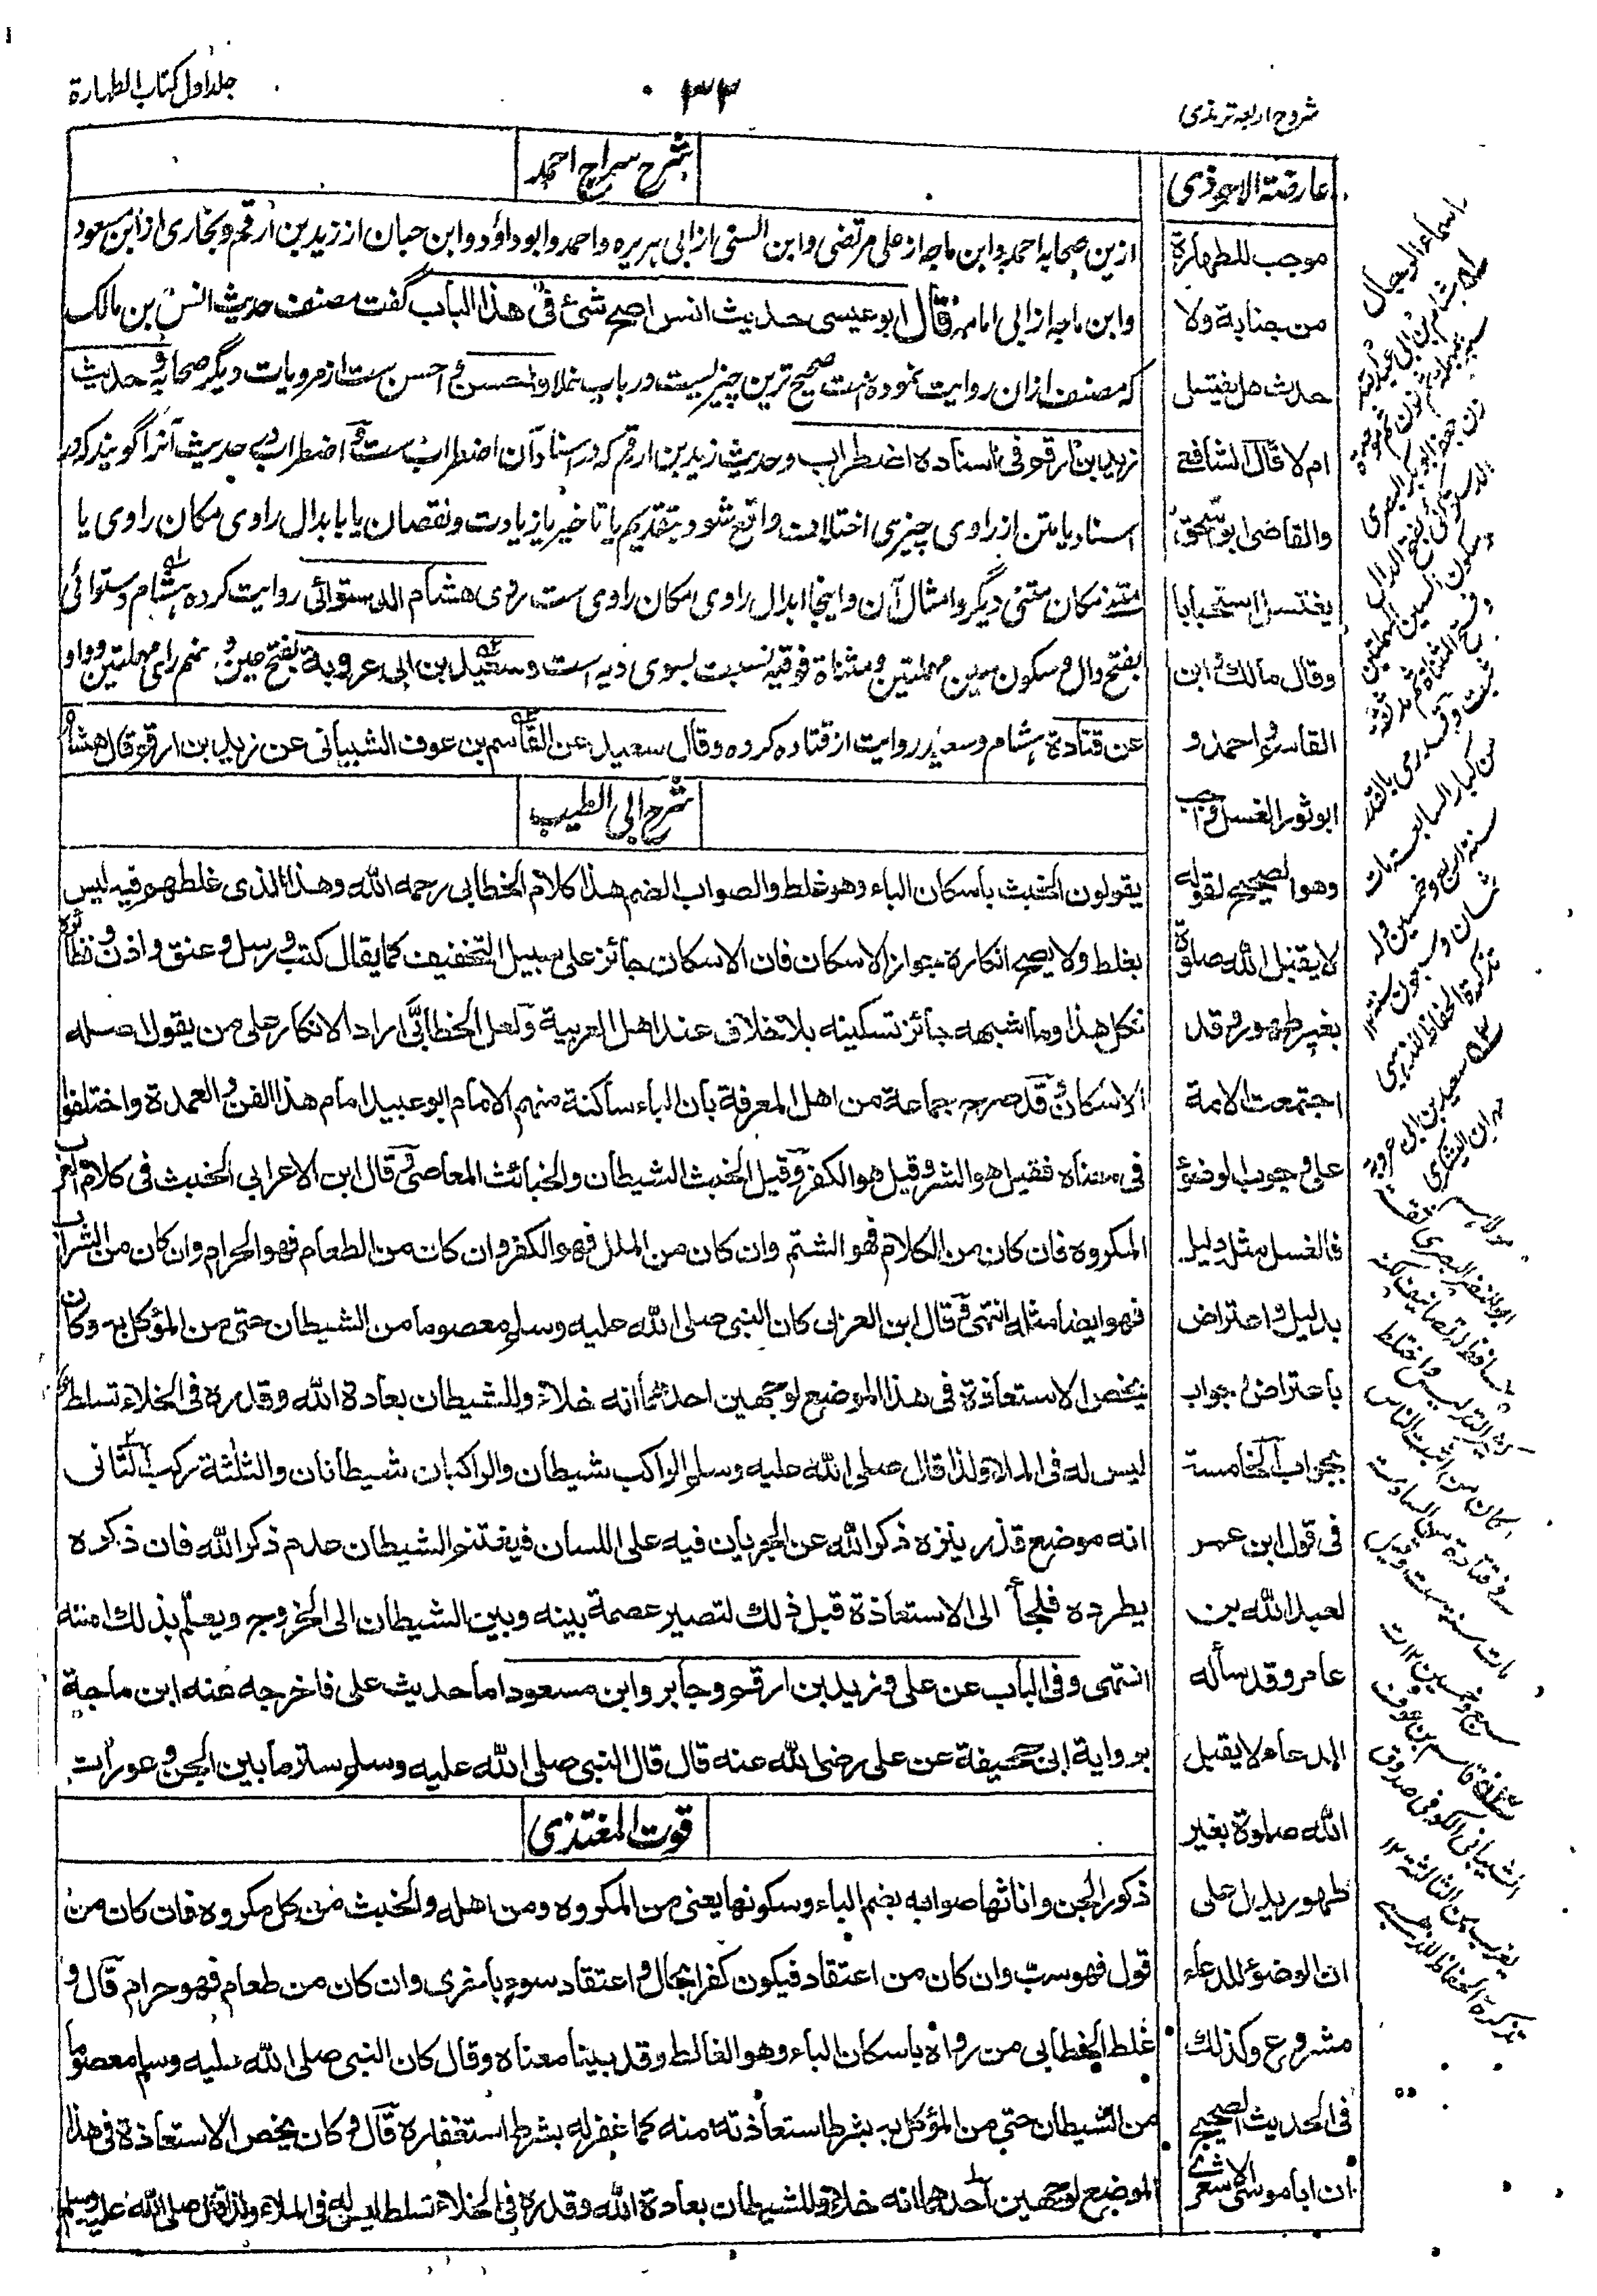 شروح اربعه ترمذی
۳۳
جلد اول کتاب الطهارة
عارضة الاحوذی
موجب للطهارة
من جنابة ولا
حدث هل یغتسل
ام لا قال الشافعی
والقاضی ابو اسحٰق
یغتسل استحبابا
وقال مالک و ابن
القاسم و احمد و
ابو ثور الغسل واجب
وهو الصحیح لقوله
لا یقبل الله صلوة
بغیر طهور و قد
اجتمعت الامة
علی وجوب الوضوء
فالغسل مثل دلیل
بدلیل واعتراض
باعتراض وجواب
بجواب الخامسة
فی قول ابن عمر
لعبد الله بن
عامر وقد سأله
الدعاء لا یقبل
الله صلوة بغیر
طهور یدل علی
ان الوضوء للدعاء
مشروع وکذلک
فی الحدیث الصحیح
ان ابا موسی الاشعری
شرح سراج احمد
ازین صحابه احمد وابن ماجه از علی مرتضی وابن السنی از ابی هریره واحمد وابو داؤد وابن حبان از زید بن ارقم وبخاری از ابن مسعود
وابن ماجه از ابی امامه قال ابو عیسی حدیث انس اصح شئ فی هذا الباب گفت مصنف حدیث انس بن مالک
که مصنف ازان روایت نموده است صحیح ترین چیزیست در باب خلا واحسن و احسن ست از مرویات دیگر صحابه و حدیث
زید بن ارقم فی اسناده اضطراب وحدیث زید بن ارقم که در اسناد آن اضطراب ست و اضطراب در حدیث آنرا گویند که در
اسناد یا متن از راوی چیزی اختلاف واقع شود بتقدیم یا تاخیر یا زیادت ونقصان یا بابدال راوی مکان راوی یا
متنی مکان متنی دیگر وامثال آن واینجا ابدال راوی مکان راوی ست روی هشام الدستوائی روایت کرده هشام دستوائی
بفتح دال وسکون سین مهملتین ومثناة فوقیه نسبت بسوی دیه است وسعید بن ابی عروبة بفتح عین و بضم رای مهملتین وواو
عن قتادة هشام وسعید روایت از قتاده کرده وقال سعید عن القاسم بن عوف الشیبانی عن زید بن ارقم وقال هشام
شرح ابی الطیب
یقولون الخبث باسکان الباء وهو غلط والصواب الضم هذا کلام الخطابی رحمه الله وهذا الذی غلطهم فیه لیس
بغلط ولا یصح انکاره جواز الاسکان فان الاسکان جائز علی سبیل التخفیف کما یقال کتب ورسل وعنق واذن ونظائره
فکل هذا وما اشبهه جائز تسکینه بلا خلاف عند اهل العربیة ولعل الخطابی اراد الانکار علی من یقول اصله
الاسکان وقد صرح جماعة من اهل المعرفة بان الباء ساکنة منهم الامام ابو عبید امام هذا الفن والعمدة واختلفوا
فی معناه فقیل هو الشر وقیل هو الکفر وقیل الخبث الشیطان والخبائث المعاصی وقال ابن الاعرابی الخبث فی کلام العرب
المکروه فان کان من الکلام فهو الشتم وان کان من الملل فهو الکفر وان کان من الطعام فهو الحرام وان کان من الشراب
فهو ایضا مثله انتهی و قال ابن العربی کان النبی صلی الله علیه وسلم معصوما من الشیطان حتی من المؤکل به وکان
یخص الاستعاذة فی هذا الموضع لوجهین احدهما انه خلاء وللشیطان بعادة الله وقدره فی الخلاء تسلط
لیس له فی الملا ولذا قال صلی الله علیه وسلم الراکب شیطان والراکبان شیطانان والثلثة رکب الثانی
انه موضع قذر ینزه ذکر الله عن الجریان فیه علی اللسان فیغتنم الشیطان عدم ذکر الله فان ذکره
یطرده فلجأ الی الاستعاذة قبل ذلک لتصیر عصمة بینه وبین الشیطان الی الخروج ویعلم بذلک امته
انتهی وفی الباب عن علی وزید بن ارقم وجابر وابن مسعود اما حدیث علی فاخرجه عنه ابن ماجة
بروایة ابی جحیفة عن علی رضی الله عنه قال قال النبی صلی الله علیه وسلم ستر ما بین الجن و عورات
قوت المغتذی
ذکور الجن واناثها صوابه بضم الباء وسکونها یعنی من المکروه ومن اهله والخبث من کل مکروه فان کان من
قول فهو سب وان کان من اعتقاد فیکون کفرا بحال واعتقاد سوء باخری وان کان من طعام فهو حرام قال و
غلط الخطابی من رواه باسکان الباء وهو الغالط وقد بینا معناه وقال کان النبی صلی الله علیه وسلم معصوما
من الشیطان حتی من المؤکل به بشرط استعاذته منه کما غفر له بشرط استغفاره قال و کان یخص الاستعاذة فی هذا
الموضع لوجهین احدهما انه خلاء وللشیطان بعادة الله وقدره فی الخلاء تسلط لیس له فی الملاء ولذا قال صلی الله علیه وسلم
اسماء الرجال
الدستوائی بفتح الدال
وسکون السین المهملتین
من کبار السابعة مات
تذکرة الحفاظ للذهبی
سعید بن ابی عروبة
مهران الیشکری
ابو النضر البصری ثقة
کثیر التدلیس واختلط
وکان من اثبت الناس
قاسم بن عوف
الشیبانی الکوفی صدوق
یغرب من الثالثة ۱۲